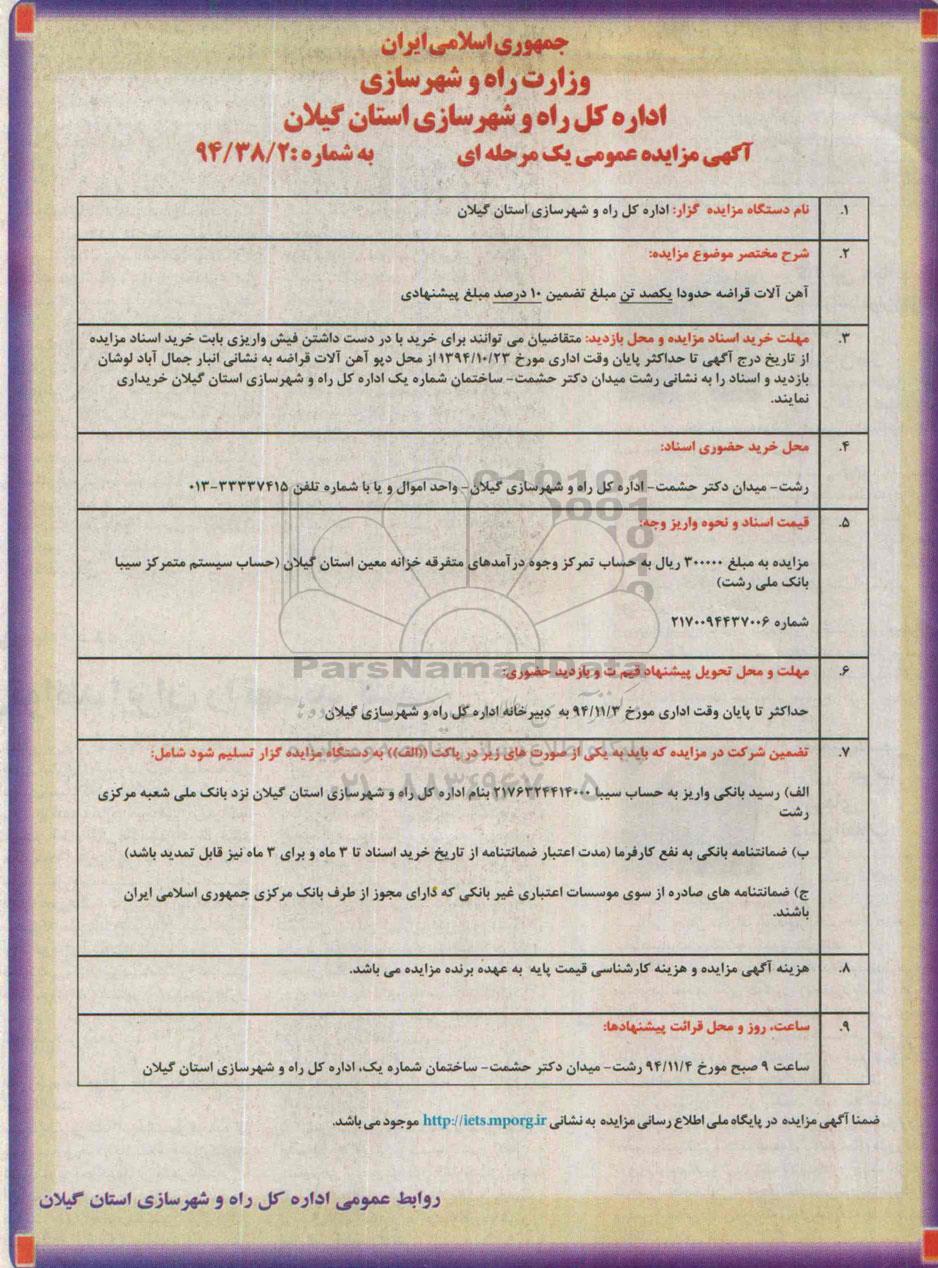 جمهوری اسلامی ایران
وزارت راه و شهرسازی
اداره کل راه و شهرسازی استان گیلان
آگهی مزایده عمومی یک مرحله ای به شماره: ۹۴/۳۸/۲
۱. نام دستگاه مزایده گزار: اداره کل راه و شهرسازی استان گیلان
۲. شرح مختصر موضوع مزایده:
آهن آلات قراضه حدودا یکصد تن مبلغ تضمین ۱۰ درصد مبلغ پیشنهادی
۳. مهلت خرید اسناد مزایده و محل بازدید: متقاضیان می توانند برای خرید با در دست داشتن فیش واریزی بابت خرید اسناد مزایده
از تاریخ درج آگهی تا حداکثر پایان وقت اداری مورخ ۱۳۹۴/۱۰/۲۳ از محل دپو آهن آلات قراضه به نشانی انبار جمال آباد لوشان
بازدید و اسناد را به نشانی رشت میدان دکتر حشمت- ساختمان شماره یک اداره کل راه و شهرسازی استان گیلان خریداری
نمایند.
۴. محل خرید حضوری اسناد:
رشت- میدان دکتر حشمت- اداره کل راه و شهرسازی گیلان- واحد اموال و یا با شماره تلفن ۳۳۳۳۷۴۱۵-۰۱۳
۵. قیمت اسناد و نحوه واریز وجه:
مزایده به مبلغ ۳۰۰۰۰۰ ریال به حساب تمرکز وجوه درآمدهای متفرقه خزانه معین استان گیلان (حساب سیستم متمرکز سیبا
بانک ملی رشت)
شماره ۲۱۷۰۰۹۴۴۳۷۰۰۶
ParsNamadData
۶. مهلت و محل تحویل پیشنهاد قیم ت و بازدید حضوری:
حداکثر تا پایان وقت اداری مورخ ۹۴/۱۱/۳ به دبیرخانه اداره کل راه و شهرسازی گیلان
۷. تضمین شرکت در مزایده که باید به یکی از صورت های زیر در پاکت ((الف)) به دستگاه مزایده گزار تسلیم شود شامل:
الف) رسید بانکی واریز به حساب سیبا ۲۱۷۶۳۲۴۴۱۴۰۰۰ بنام اداره کل راه و شهرسازی استان گیلان نزد بانک ملی شعبه مرکزی
رشت
ب) ضمانتنامه بانکی به نفع کارفرما (مدت اعتبار ضمانتنامه از تاریخ خرید اسناد تا ۳ ماه و برای ۳ ماه نیز قابل تمدید باشد)
ج) ضمانتنامه های صادره از سوی موسسات اعتباری غیر بانکی که دارای مجوز از طرف بانک مرکزی جمهوری اسلامی ایران
باشند.
۸. هزینه آگهی مزایده و هزینه کارشناسی قیمت پایه به عهده برنده مزایده می باشد.
۹. ساعت، روز و محل قرائت پیشنهادها:
ساعت ۹ صبح مورخ ۹۴/۱۱/۴ رشت- میدان دکتر حشمت- ساختمان شماره یک، اداره کل راه و شهرسازی استان گیلان
ضمنا آگهی مزایده در پایگاه ملی اطلاع رسانی مزایده به نشانی http://iets.mporg.ir موجود می باشد.
روابط عمومی اداره کل راه و شهرسازی استان گیلان